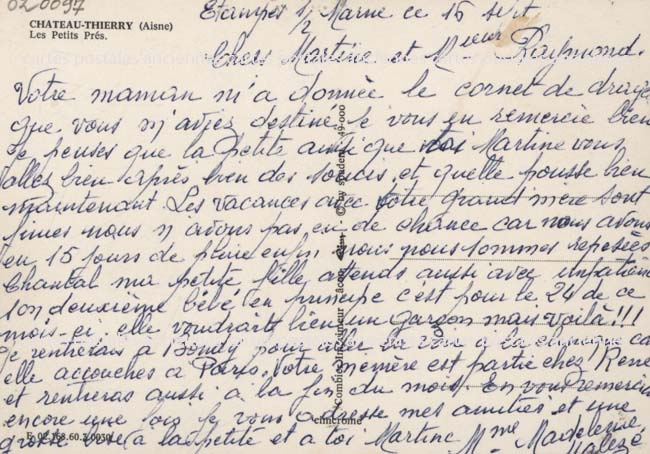 020097
CHATEAU-THIERRY (Aisne)
Les Petits Prés.
Etampes s/ Marne ce 15 sept
Chers Martine et Mieur Raymond.
Votre maman m'a donnée le cornet de dragé
que vous m'aviez destiné. Je vous en remercie bien
Je penses que la petite ainsi que toi Martine vous
allez bien après bien des soucis, et quelle pousse bien
maintenant. Les vacances avec votre grand mère sont
finies nous n'avons pas eu de chance car nous avons
eu 15 jours de pluie enfin nous nous sommes reposées
Chantal ma petite fille attends aussi avec impatience
son deuxième bébé, en principe c'est pour le 24 de ce
mois-ci. elle voudrait bien un garçon mais voilà!!!
Je rentrerais à Bondy pour aller la voir à la clinique car
elle accouches à Paris. Votre mémère est partie chez René
et rentreras aussi à la fin du mois. En vous remerciant
encore une fois je vous adresse mes amitiés et une
grosse bise à la petite et a toi Martine Mme Madeleine
E. 02.168.60.2.0030
cimcrome
by spadem
49-000
Combier imprimeur
cartes postales anciennes